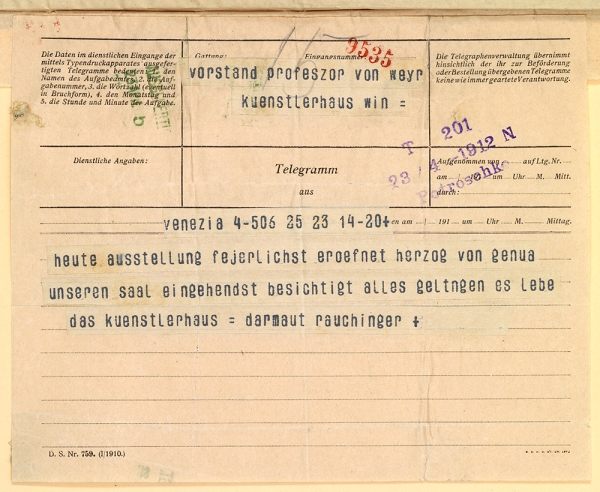 Die Daten im dienstlichen Eingange der
mittels Typendruckapparates ausgefer-
tigten Telegramme bedeuten: 1. den
Namen des Aufgabeamtes, 2. die Auf-
gabenummer, 3. die Wortzahl (eventuell
in Bruchform), 4. den Monatstag und
5. die Stunde und Minute der Aufgabe.
Gattung:
Eingangsnummer
9535
vorstand profeszor von weyr
kuenstlerhaus win =
Die Telegraphenverwaltung übernimmt
hinsichtlich der ihr zur Beförderung
oder Bestellung übergebenen Telegramme
keine wie immer geartete Verantwortung.
T 201
23/4-1912 N
Petroschk
Dienstliche Angaben:
Telegramm
aus
Aufgenommen von auf Ltg. Nr.
am / um Uhr M. Mitt.
durch:
venezia 4-506 25 23 14-20+
en am / 191 um Uhr M. Mittag.
heute ausstellung fejerlichst eroefnet herzog von genua
unseren saal eingehendst besichtigt alles geltngen es lebe
das kuenstlerhaus = darmaut rauchinger +
D. S. Nr. 759. (I/1910.)